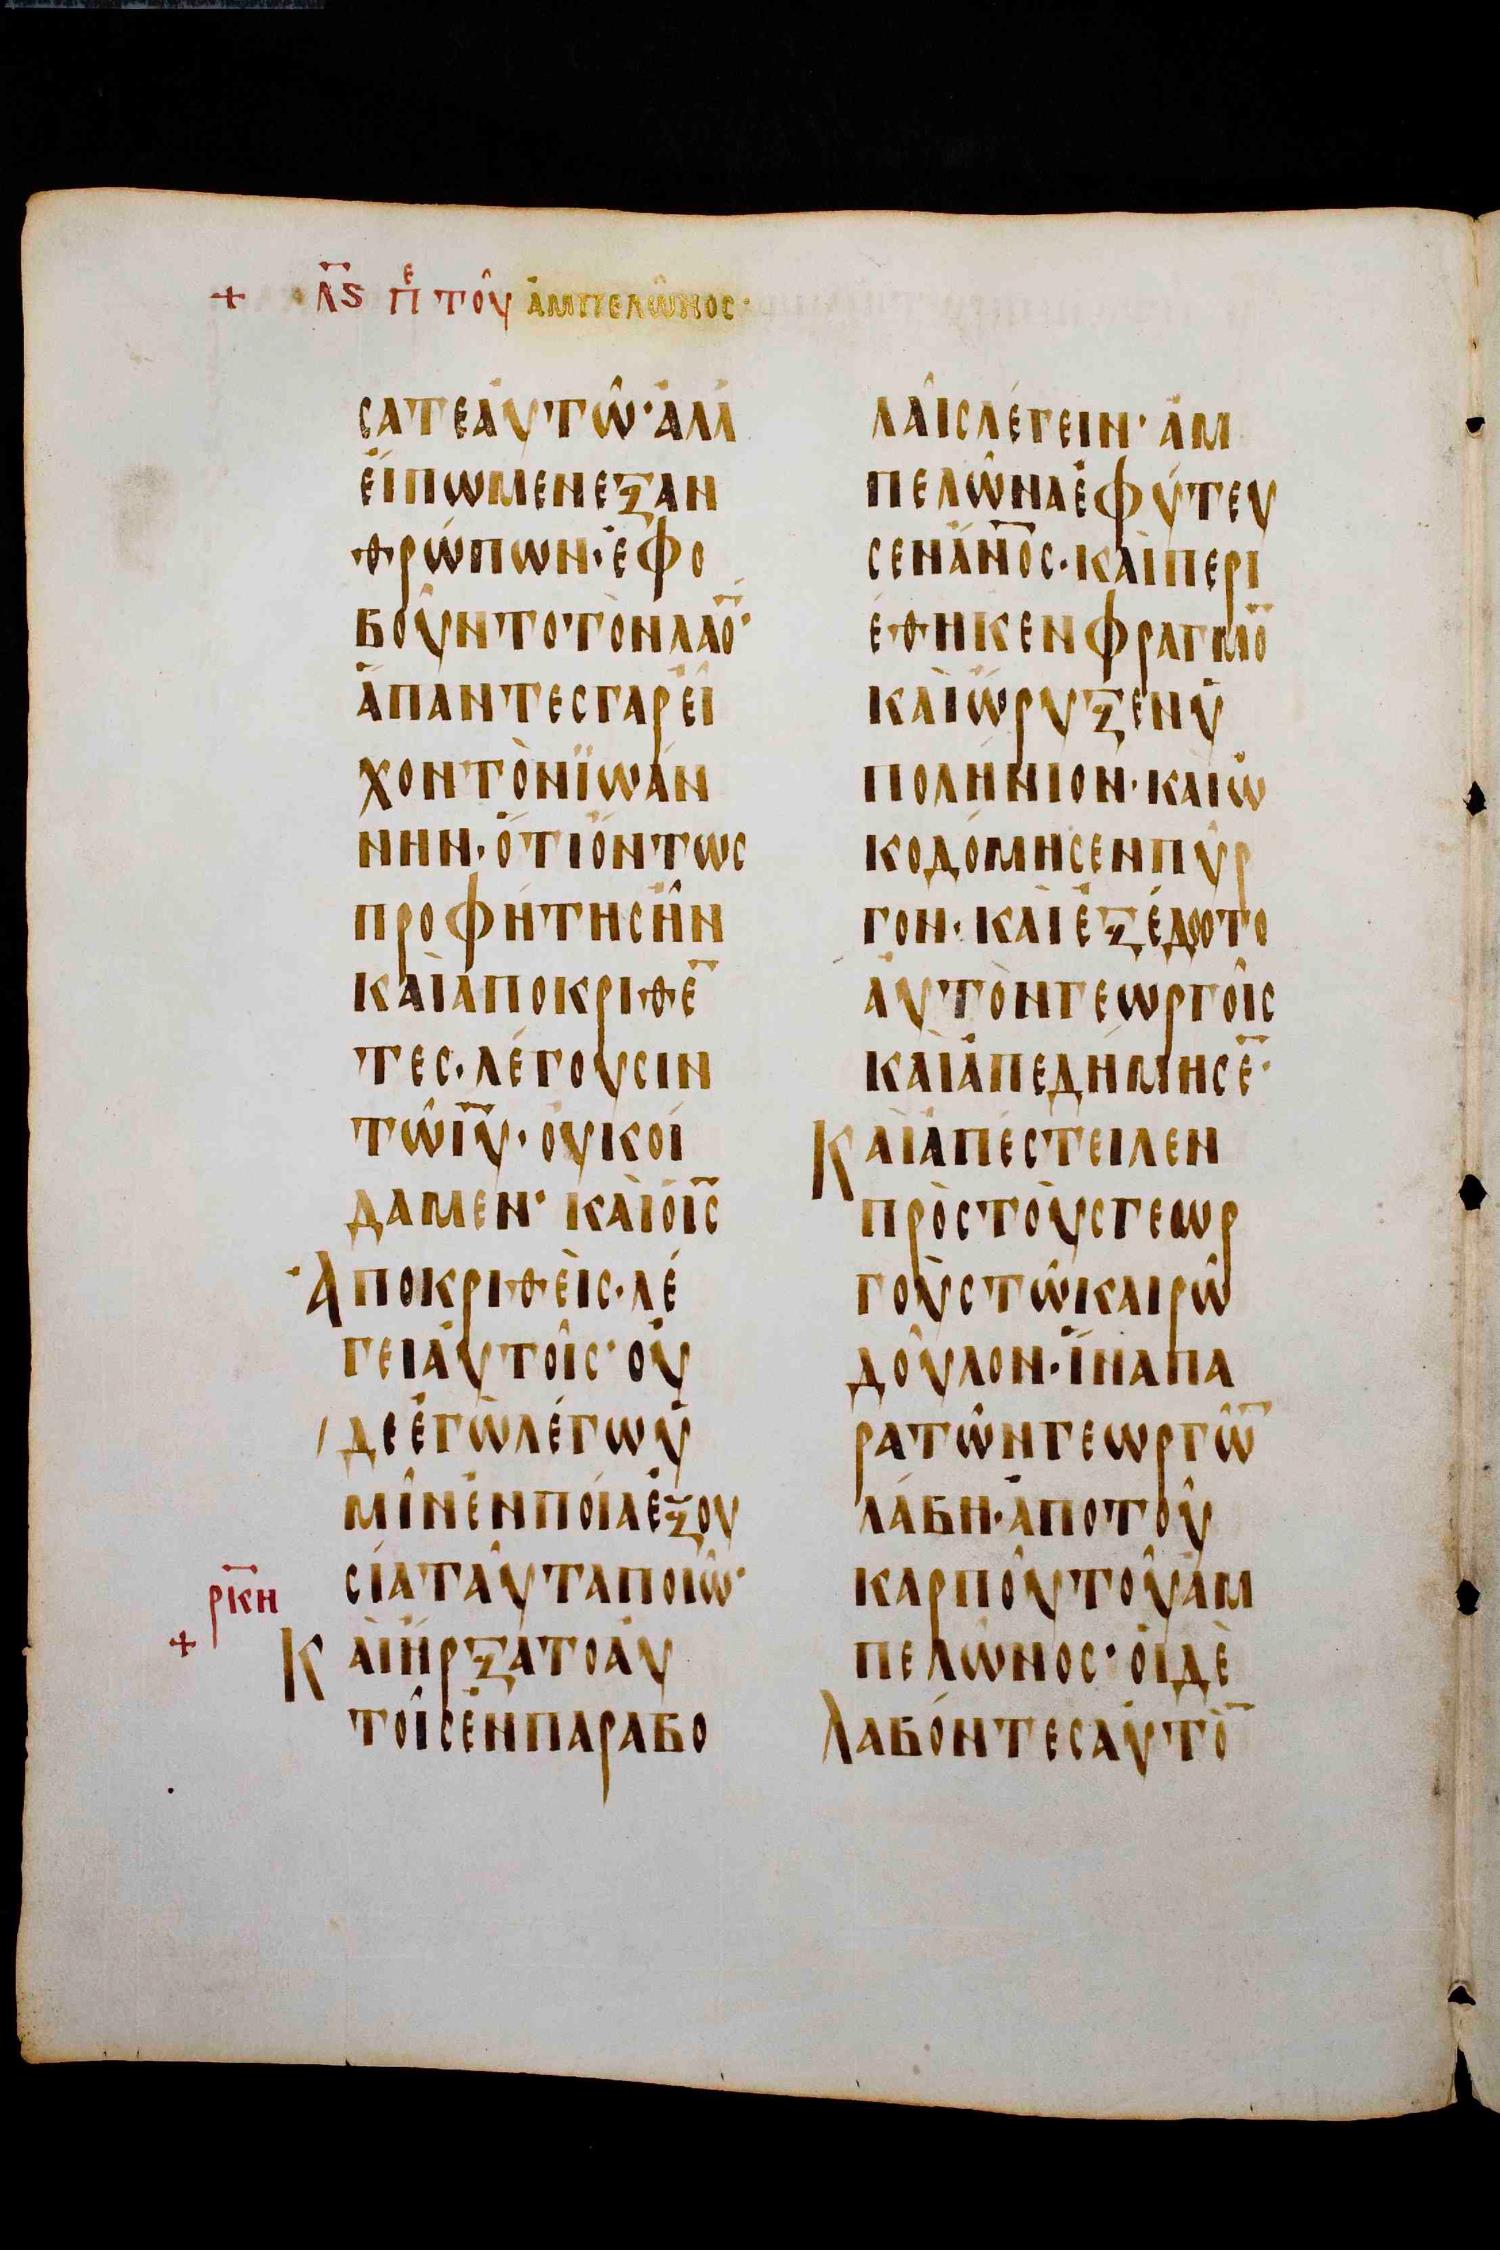 + λ̅ϛ̅ πε τοῦ ἀμπελῶνος·
σατεἀυτῶ· ἀλλ
εἴπωμενεξαν
θρώπων· ἐφο
βοῦντοτὸνλαο̅·
ἅπαντεσγαρεἶ
χοντὸνϊωάν
νην· ὅτιὄντως
προφήτησἦν
καὶἀποκριθε̅
τες· λέγουσιν
τῶι̅υ̅· ουκοί
δαμεν· καὶὁι̅ς̅
Ἀποκριθεὶς· λέ
γειἀυτοῖς· ου
δεἐγὼλέγωὑ
μῖνἐνποίαἐξου
σίαταῦταποιῶ·
ρ̅κ̅η̅
+
Καὶἤρξατοαυ
τοῖσἐνπαραβο
λαῖσλέγειν· ἀμ
πελῶναἐφύτευ
σενἄν̅ο̅ς· καὶπερι
έθηκενφραγμο̅
καὶὤρυξενὑ
πολήνιον· καὶὠ
κοδόμησενπύρ
γον· καὶἐξέδοτο
ἀυτὸνγεωργοῖς
καὶἀπεδήμησε̅·
Καὶἀπέστειλεν
πρὸστοὺσγεωρ
γοὺστῶκαιρῶ
δοῦλον· ἵναπα
ρατῶνγεωργω̅
λάβη· ἀποτοῦ
καρποῦτοῦἀμ
πελῶνος· ὁιδὲ
Λαβόντεσαὐτο̅